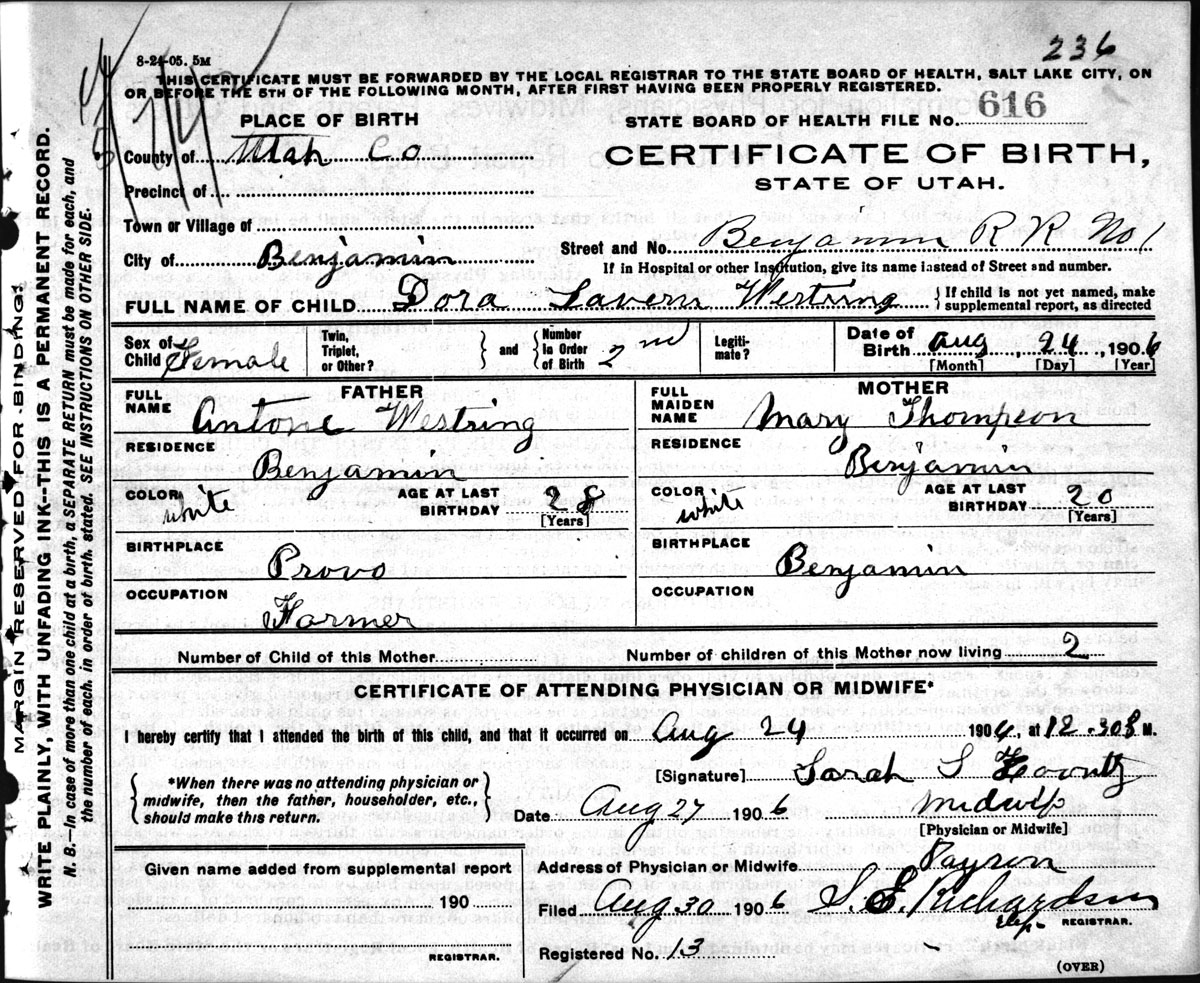 236
8-24-05. 5M
THIS CERTIFICATE MUST BE FORWARDED BY THE LOCAL REGISTRAR TO THE STATE BOARD OF HEALTH, SALT LAKE CITY, ON
OR BEFORE THE 5TH OF THE FOLLOWING MONTH, AFTER FIRST HAVING BEEN PROPERLY REGISTERED.
PLACE OF BIRTH
STATE BOARD OF HEALTH FILE No. 616
County of Utah Co
CERTIFICATE OF BIRTH,
STATE OF UTAH.
Precinct of
Town or Village of
City of Benjamin
Street and No. Benjamin R R No 1
If in Hospital or other Institution, give its name instead of Street and number.
FULL NAME OF CHILD Dora Lavern Westring { If child is not yet named, make
supplemental report, as directed
Sex of Child Female
Twin, Triplet, or Other? } and { Number in Order of Birth 2nd
Legiti-mate?
Date of Birth Aug, 24, 1906
[Month] [Day] [Year]
FATHER
FULL NAME Antone Westring
MOTHER
FULL MAIDEN NAME Mary Thompson
RESIDENCE Benjamin
RESIDENCE Benjamin
COLOR white AGE AT LAST BIRTHDAY 28 [Years]
COLOR white AGE AT LAST BIRTHDAY 20 [Years]
BIRTHPLACE Provo
BIRTHPLACE Benjamin
OCCUPATION Farmer
OCCUPATION
Number of Child of this Mother
Number of children of this Mother now living 2
CERTIFICATE OF ATTENDING PHYSICIAN OR MIDWIFE*
I hereby certify that I attended the birth of this child, and that it occurred on Aug 24 1906, at 12.30 M.
[Signature] Sarah S Koontz
{ *When there was no attending physician or
midwife, then the father, householder, etc.,
should make this return. }
Date Aug 27 1906 Midwife
[Physician or Midwife]
Given name added from supplemental report
190
REGISTRAR.
Address of Physician or Midwife Payson
Filed Aug 30 1906 S. E. Richardson
Dep. REGISTRAR.
Registered No. 13
(OVER)
MARGIN RESERVED FOR BINDING!
WRITE PLAINLY, WITH UNFADING INK--THIS IS A PERMANENT RECORD.
N. B.--In case of more than one child at a birth, a SEPARATE RETURN must be made for each, and
the number of each, in order of birth, stated. SEE INSTRUCTIONS ON OTHER SIDE.